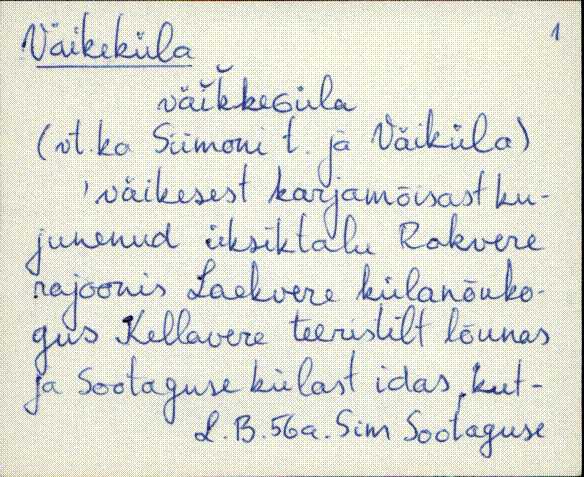 Väikeküla 1
väĭk̆keGüla
(vt. ka Siimoni t. ja Väiküla)
'väikesest karjamõisast ku-
junenud üksiktalu Rakvere
rajoonis Laekvere külanõuko-
gus Kellavere teeristilt lõunas
ja Sootaguse külast idas, kut-
L. B. 56a. Sim Sootaguse